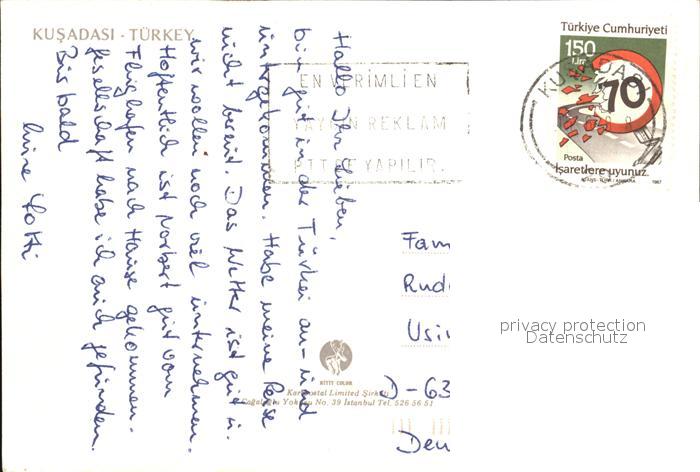 KUŞADASI - TÜRKEY
Hallo Ihr Lieben,
bin gut in der Türkei an- und
untergekommen. Habe meine Reise
nicht bereut. Das Wetter ist gut u.
wir wollen noch viel unternehmen.
Hoffentlich ist Norbert gut vom
Flughafen nach Hause gekommen.
Gesellschaft habe ich auch gefunden.
Bis bald
Eure Lotti
EN VERİMLİ EN
YAYGIN REKLAM
PTT'CE YAPILIR.
KUŞADASI
Türkiye Cumhuriyeti
150
Lira
70
Posta
İşaretlere uyunuz.
1987
Fam
Rud
Usin
D-63
Deu
privacy protection
Datenschutz
KITTY COLOR
Kartpostal Limited Şirketi
Cağaloğlu Yokuşu No. 39 İstanbul Tel. 526 56 51